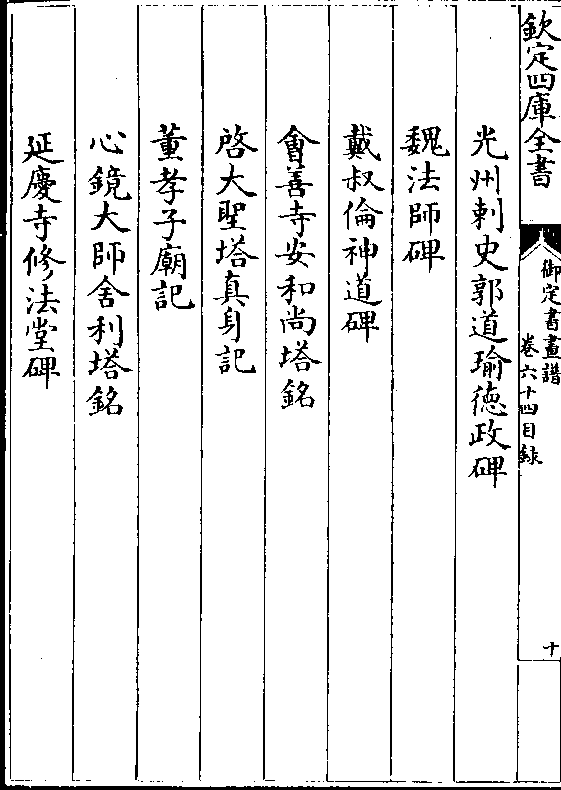 欽定四庫全書
御定書畫譜
卷六十四目録
十
光州刺史郭道瑜徳政碑
魏法師碑
戴叔倫神道碑
會善寺安和尚塔銘
啓大聖塔真身記
董孝子廟記
心鏡大師舍利塔銘
延慶寺修法堂碑